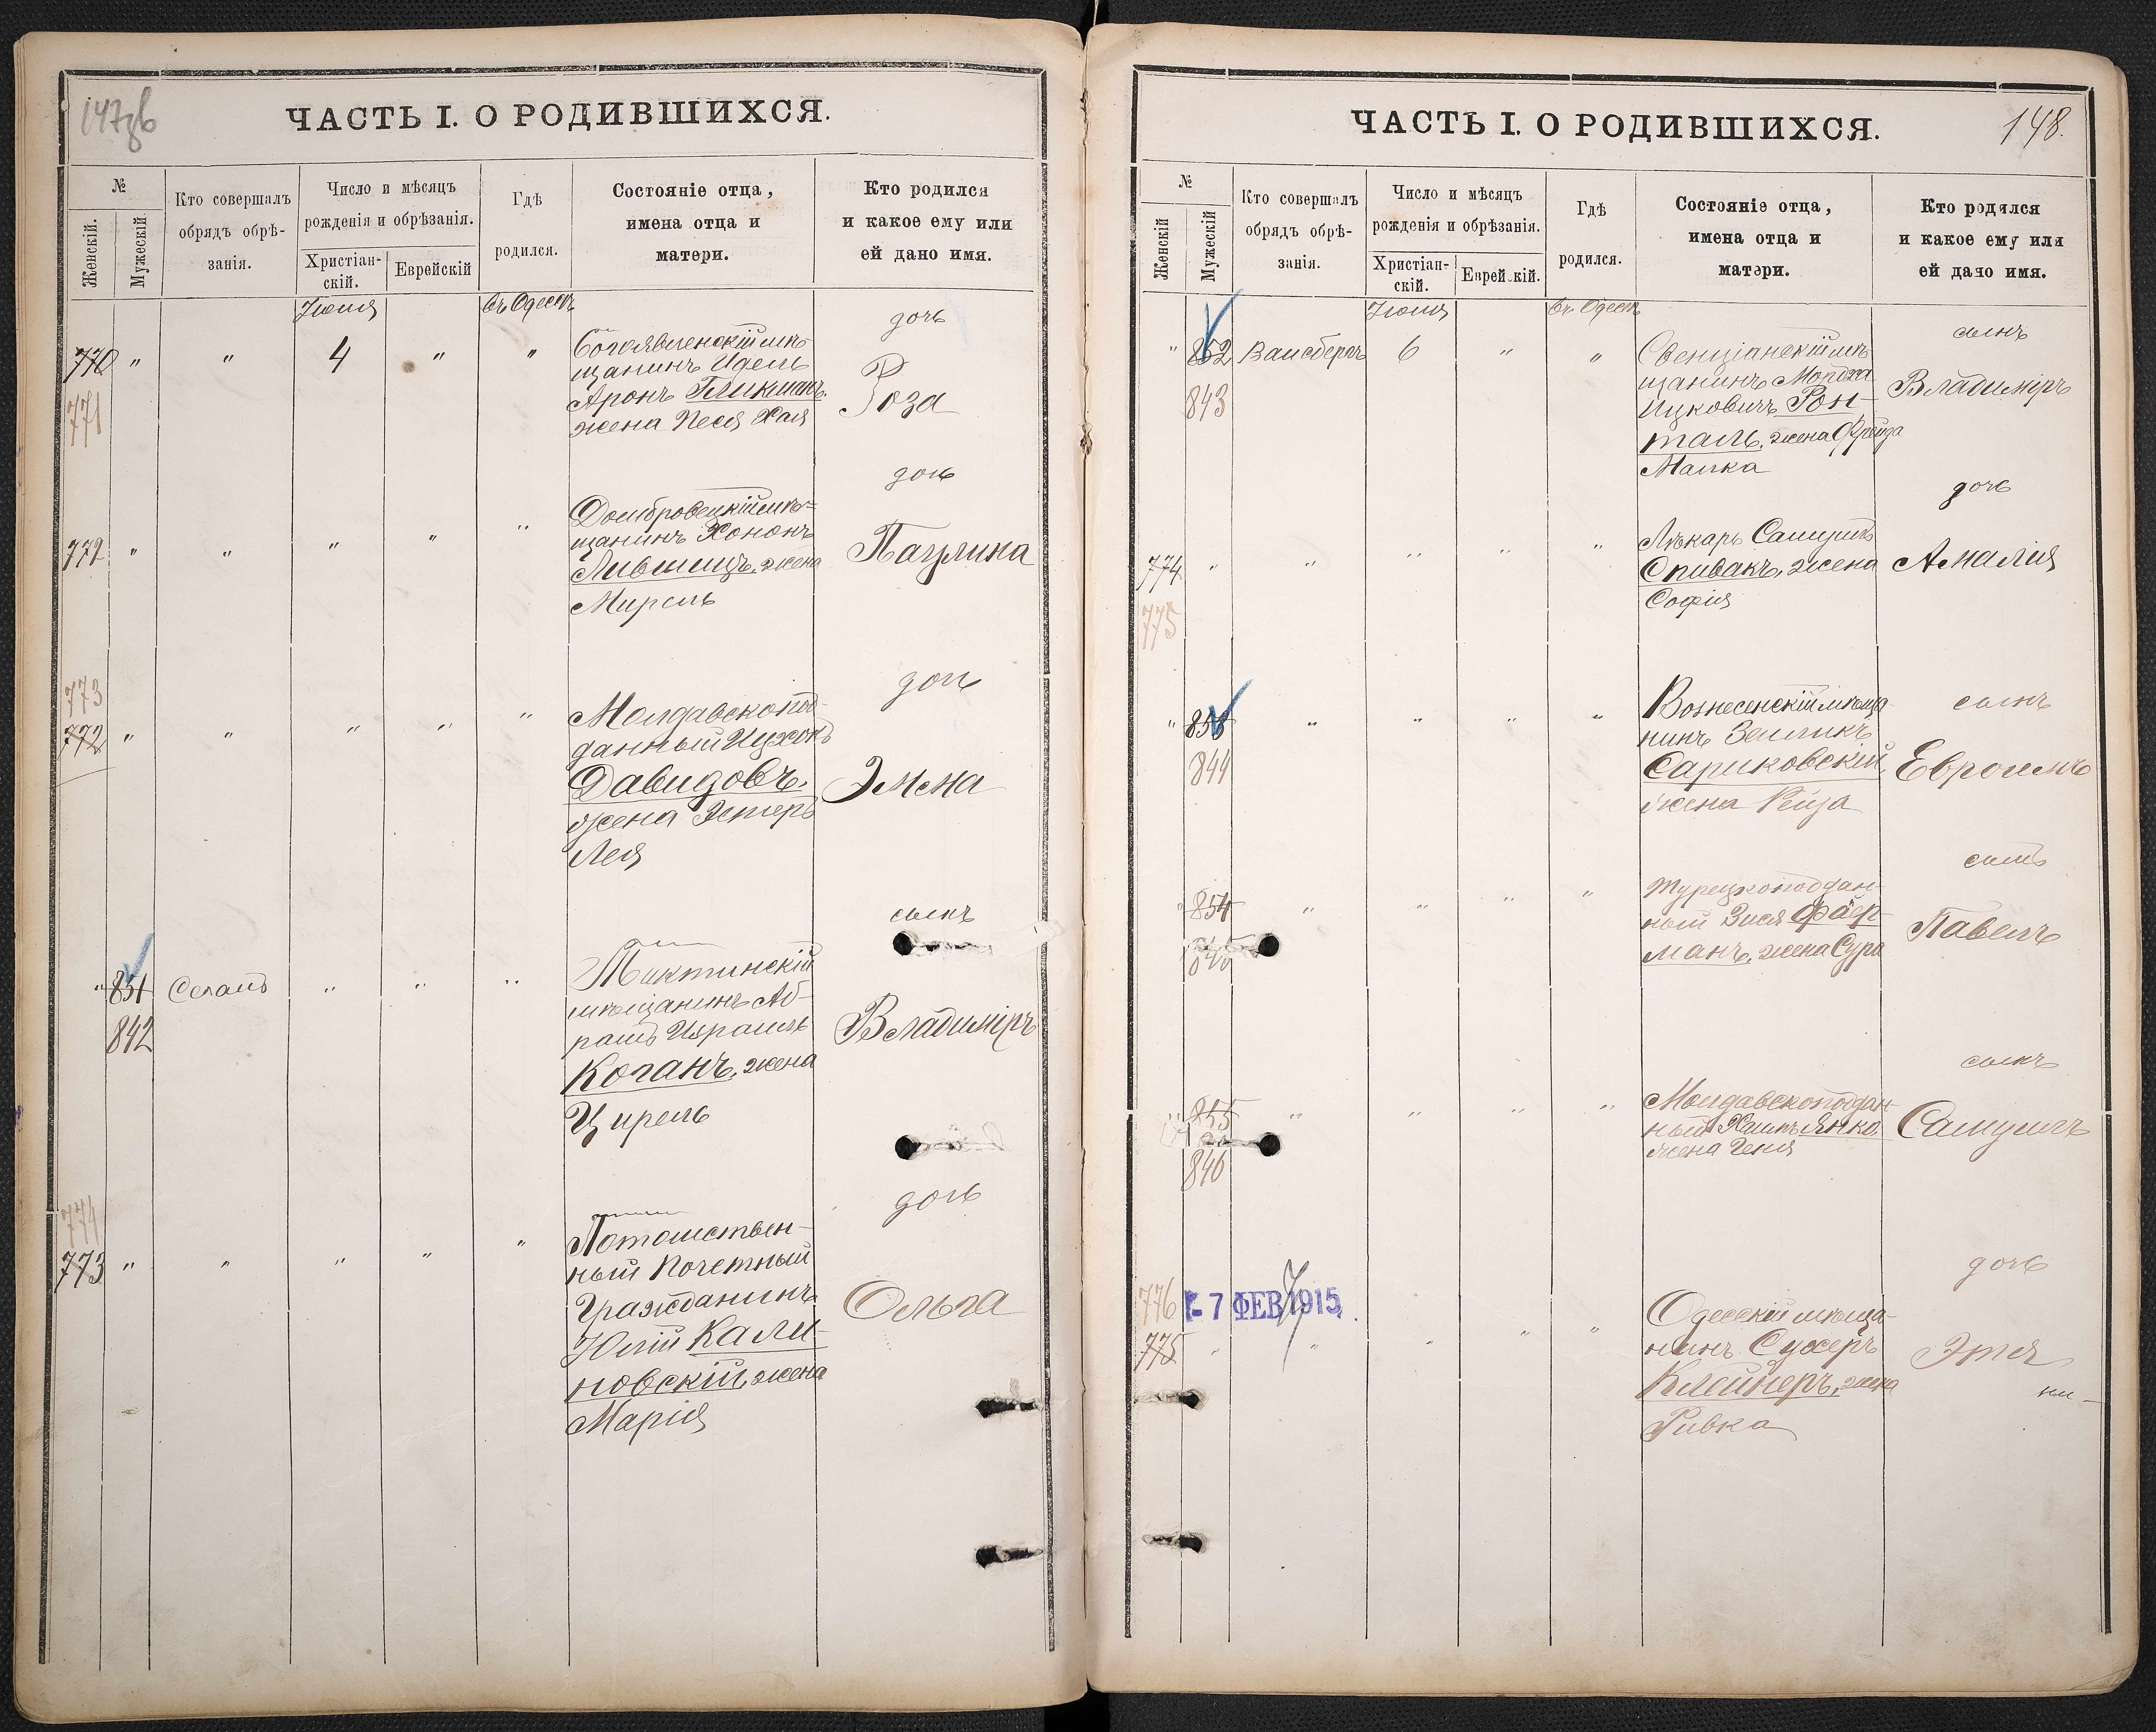 147об
ЧАСТЬ I. О РОДИВШИХСЯ.
№
Женскій.
Мужескій
Кто совершалъ
обрядъ обрѣ-
занія.
Число и мѣсяцъ
рожденія и обрѣзанія.
Христіан-
скій.
Еврейскій
Гдѣ
родился.
Состояніе отца,
имена отца и
матери.
Кто родился
и какое ему или
ей дано имя.
Іюня
въ Одессѣ
дочь
770 " " 4 " "
771
Богоявленскій мѣ-
щанинъ Идель
Аронъ Гликманъ.
жена Песя Хая
Роза
дочь
772 " " " " "
Домбровецкій мѣ-
щанинъ Хононъ
Лившицъ, жена
Мирель
Паулина
дочь
773
772 " " " " "
Молдавскопод-
данный Ицхокъ
Давидовъ.
жена Эстеръ
Лея
Эмма
сынъ
" 851
842
" " "
мѣщанинъ Аб-
рамъ
Коганъ, жена
Цирель
Владиміръ
дочь
774
773 " " " " "
Потомствен-
ный Почетный
Гражданинъ
Юлій Кали-
новскій, жена
Марія
Ольга
148.
ЧАСТЬ I. О РОДИВШИХСЯ.
№
Женскій
Мужескій
Кто совершалъ
обрядъ обрѣ-
занія.
Число и мѣсяцъ
рожденія и обрѣзанія.
Христіан-
скій.
Еврейскій.
Гдѣ
родился.
Состояніе отца,
имена отца и
матери.
Кто родился
и какое ему или
ей дано имя.
Іюня
въ Одессѣ
сынъ
" 852 Вайсбергъ 6 " "
843
Свенціанскій мѣ-
щанинъ Мордха
Ицковичъ Рон-
таль, жена Фрейда
Малка
Владиміръ
дочь
774 " " " " "
775
Лѣкарь Самуилъ
Спивакъ, жена
Софія
Амалія
сынъ
" 853 " " " "
844
Вознесенскій мѣща-
нинъ Зейликъ
Сариковскій,
жена Рейза
Евроимъ
сынъ
" 854 " " " "
845
Турецкоподдан-
ный Зися Фаер-
манъ, жена Сура
Павелъ
сынъ
" 855 " " " "
846
Молдавскоподдан-
ный Хаимъ Янко,
жена Геня
Самуилъ
дочь
776
- 7 ФЕВ 1915
775 " " " " "
Одесскій мѣща-
нинъ Сухеръ
Клейнеръ, жена
Ривка
Этя